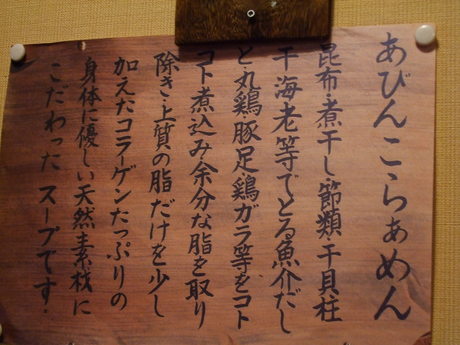 あびんこらぁめん
昆布・煮干し・節類・干貝柱
干海老等でとる魚介だし
と丸鶏豚足・鶏ガラ等をコト
コト煮込み余分な脂を取り
除き・上質の脂だけを少し
加えたコラーゲンたっぷりの
身体に優しい天然素材に
こだわったスープです・